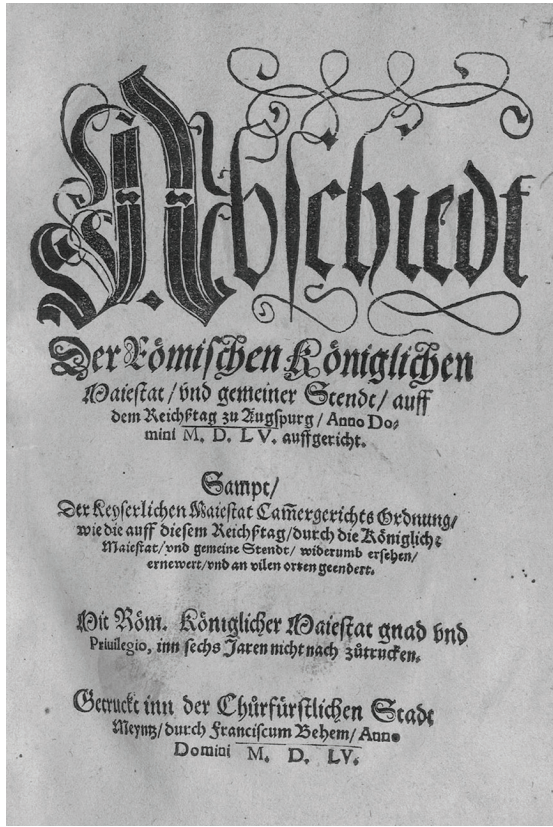 Abschiedt
Der Römischen Königlichen
Maiestat / vnd gemeiner Stendt / auff
dem Reichßtag zu Augspurg / Anno Do-
mini M. D. LV. auffgericht.
Sampt /
Der Keyserlichen Maiestat Cam̄ergerichts Ordnung /
wie die auff diesem Reichßtag / durch die Königlich:
Maiestat / vnd gemeine Stendt / widerumb ersehen /
ernewert / vnd an vilen orten geendert.
Mit Röm. Königlicher Maiestat gnad vnd
Priuilegio, inn sechs Jaren nicht nach zůtrucken.
Getruckt inn der Chůrfürstlichen Stadt
Meyntz / durch Franciscum Behem / Anno
Domini M. D. LV.